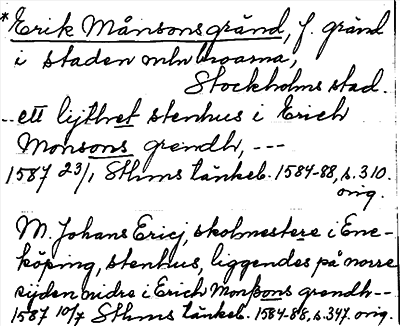 *Erik Månsonsgränd, f. gränd
i staden mln broarna,
Stockholms stad.
-- ett lijthet stenhus i Erich
Monsons grendh, ---
1587 23/1 Sthms tänkeb. 1584-88, s. 310.
orig.
M. Johans Ericj, skolmestere i Ene-
köping, stenhus, liggendes på norre
sijden nidre i Erich Monßons grendh--
1587 10/7 Sthms tänkeb. 1584-88, s. 347. orig.